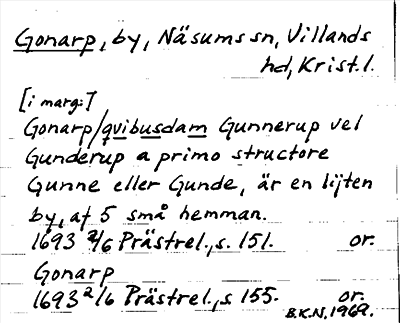 Gonarp, by, Näsums sn, Villands
hd, Krist.l.
[i marg:]
Gonarp/qvibusdam Gunnerup vel
Gunderup a primo structore
Gunne eller Gunde, är en lijten
by, af 5 små hemman.
1693 2/6 Prästrel., s. 151. or.
Gonarp
1693 2/6 Prästrel., s 155. or.
B.K.N, 1969.